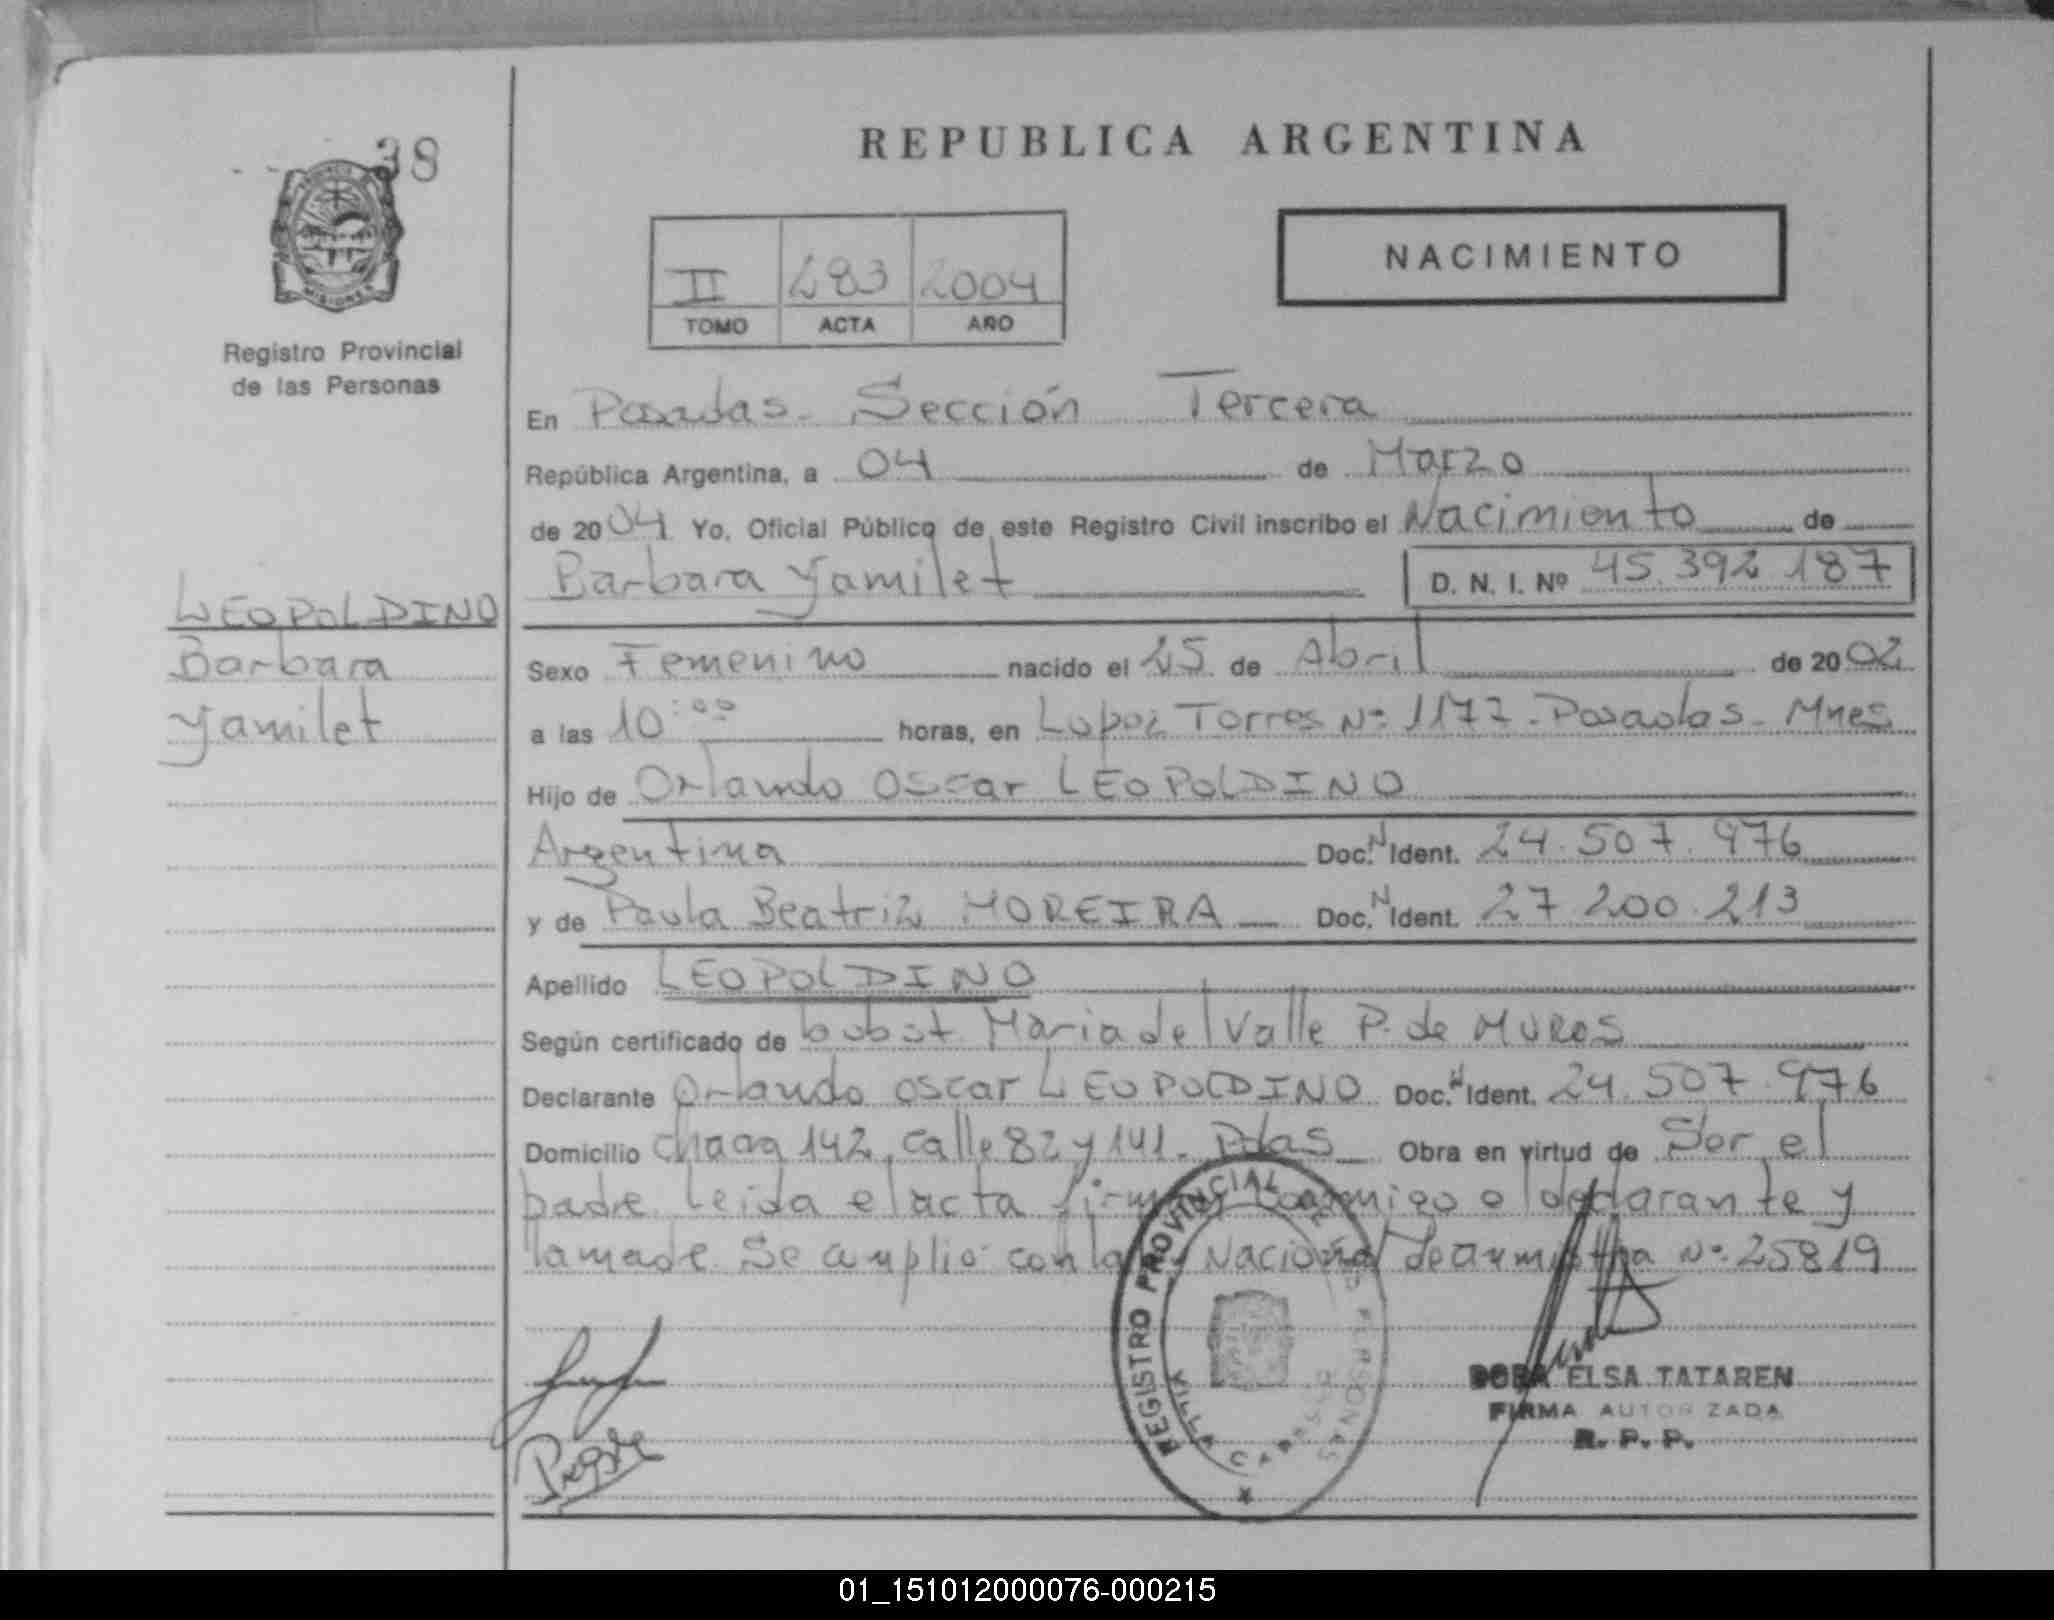 38
PROVINCIA
MISIONES
Registro Provincial
de las Personas
LEOPOLDINO
Barbara
Yamilet
REPUBLICA ARGENTINA
II 283 2004
TOMO ACTA AÑO
NACIMIENTO
En Posadas. Sección Tercera
República Argentina, a 04 de Marzo
de 2004 Yo, Oficial Público de este Registro Civil inscribo el Nacimiento de
Barbara Yamilet D. N. I. Nº 45.392.187
Sexo Femenino nacido el 25 de Abril de 2002
a las 10:00 horas, en Lopez Torres Nº 1177. Posadas. Mnes
Hijo de Orlando Oscar LEOPOLDINO
Argentina Doc. N Ident. 24.507.976
y de Paula Beatriz MOREIRA Doc. N Ident. 27.200.213
Apellido LEOPOLDINO
Según certificado de obst. Maria del Valle P. de MUROS
Declarante Orlando Oscar LEOPOLDINO Doc. N Ident. 24.507.976
Domicilio Chacra 142, calle 82 y 141. Pdas Obra en virtud de Ser el
padre. Leida el acta firma conmigo el declarante y
la madre. Se cumplio con la Nacional de amnistia Nº 25819
REGISTRO PROVINCIAL DE LAS PERSONAS
VILLA
DORA ELSA TATAREN
FIRMA AUTORIZADA
R. P. P.
01_151012000076-000215